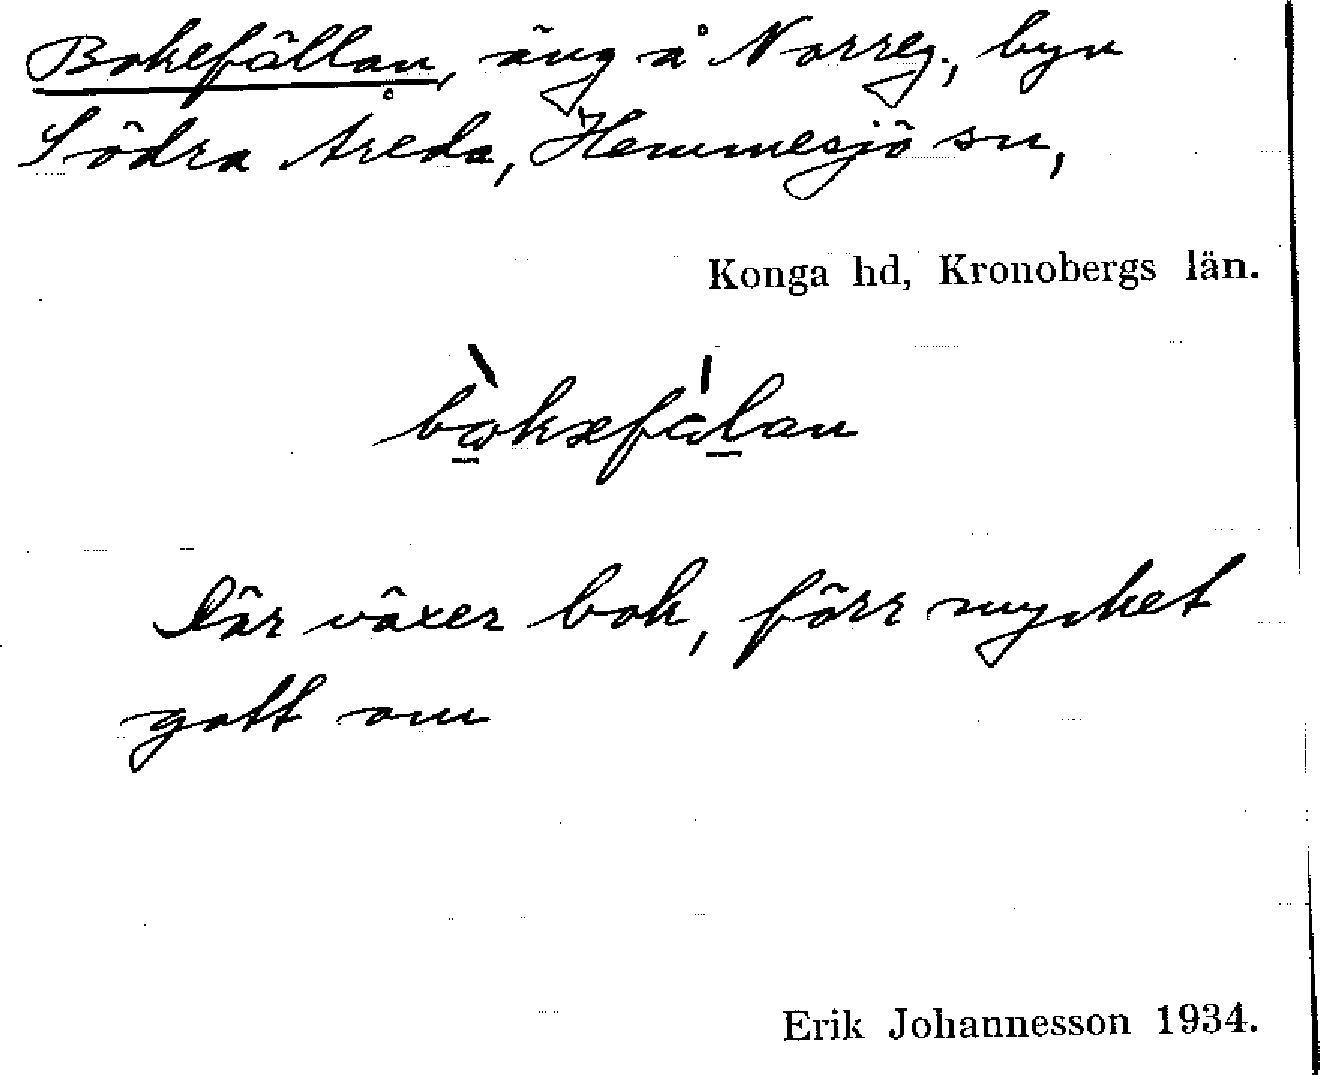 Bokefällan, äng å Norreg., byn
Södra Åreda, Hemmesjö sn,
Konga hd, Kronobergs län.
Där växer bok, förr mycket
gott om
Erik Johannesson 1934.